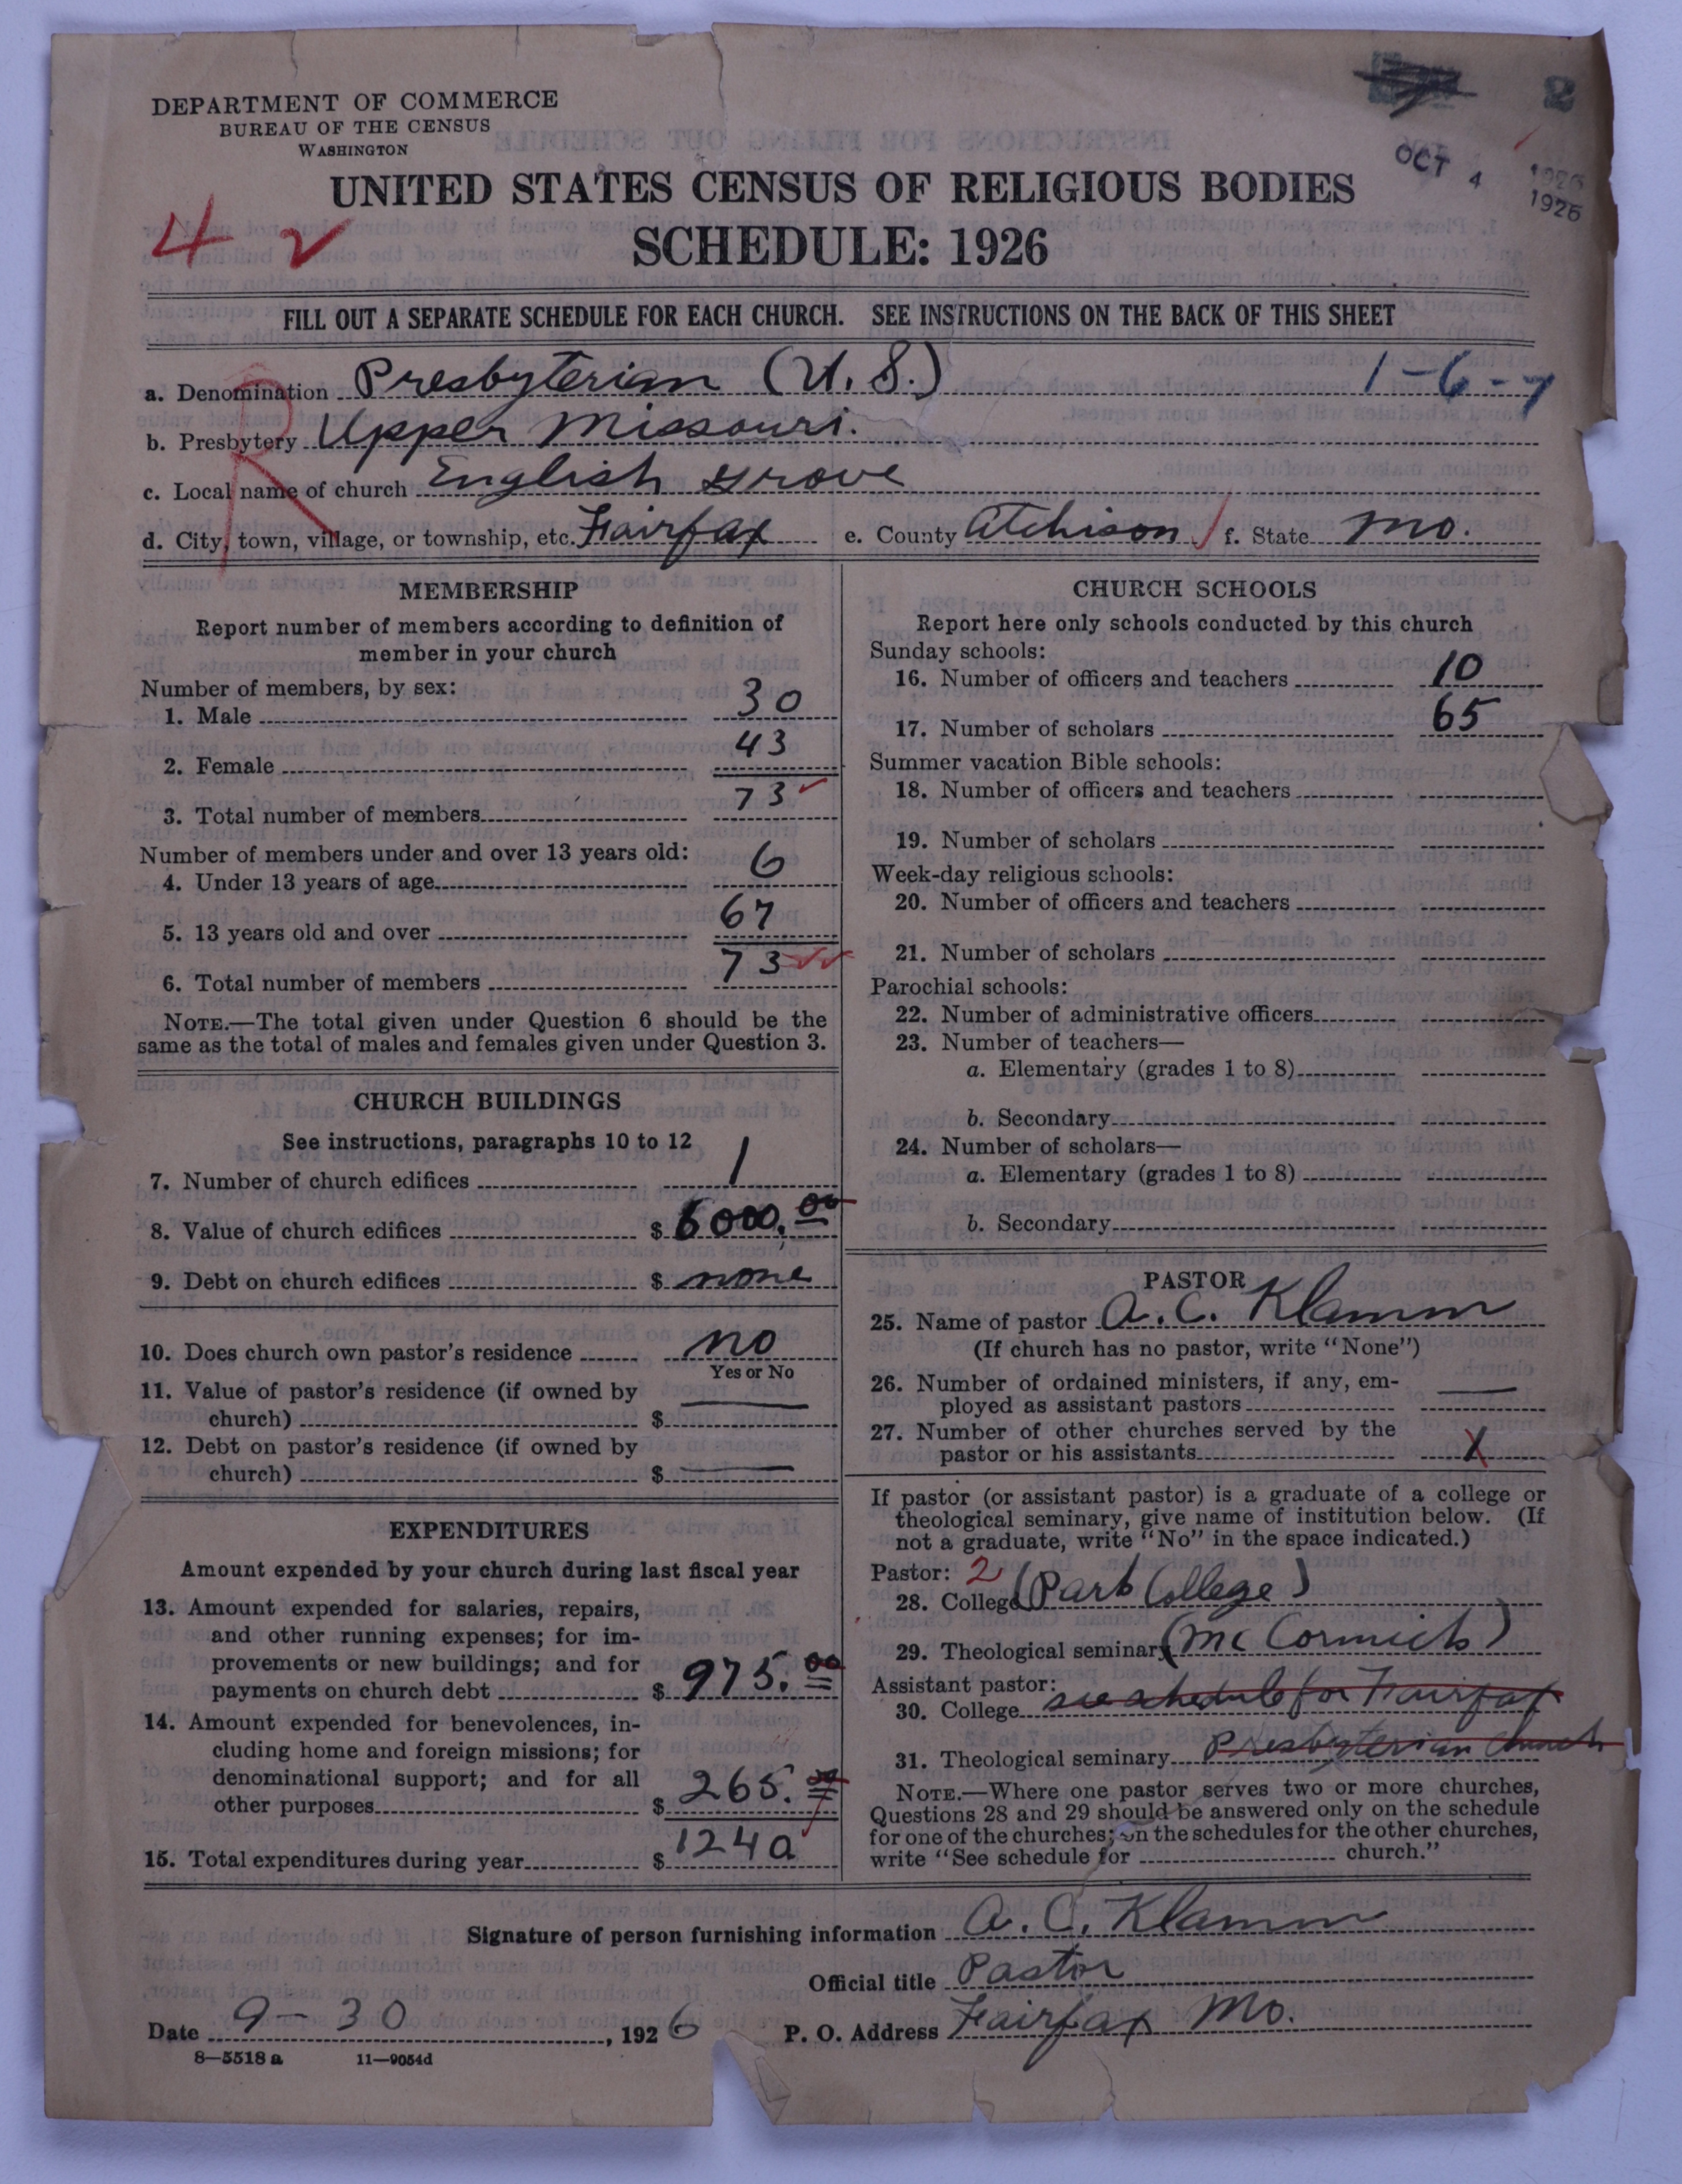 2
OCT 4 1926
1926
DEPARTMENT OF COMMERCE
BUREAU OF THE CENSUS
WASHINGTON
UNITED STATES CENSUS OF RELIGIOUS BODIES
4 2
SCHEDULE: 1926
FILL OUT A SEPARATE SCHEDULE FOR EACH CHURCH. SEE INSTRUCTIONS ON THE BACK OF THIS SHEET
a. Denomination Presbyterian (U.S.) 1-6-7
b. Presbytery Upper Missouri.
R
c. Local name of church English Grove
d. City, town, village, or township, etc. Fairfax e. County Atchison f. State Mo.
MEMBERSHIP
Report number of members according to definition of
member in your church
Number of members, by sex:
1. Male 30
2. Female 43
3. Total number of members 73
Number of members under and over 13 years old:
4. Under 13 years of age 6
5. 13 years old and over 67
6. Total number of members 73
NOTE.—The total given under Question 6 should be the
same as the total of males and females given under Question 3.
CHURCH BUILDINGS
See instructions, paragraphs 10 to 12
7. Number of church edifices 1
8. Value of church edifices $ 6000.00
9. Debt on church edifices $ none
10. Does church own pastor's residence no
Yes or No
11. Value of pastor's residence (if owned by
church) $ —
12. Debt on pastor's residence (if owned by
church) $ —
EXPENDITURES
Amount expended by your church during last fiscal year
13. Amount expended for salaries, repairs,
and other running expenses; for im-
provements or new buildings; and for
payments on church debt $ 975.00
14. Amount expended for benevolences, in-
cluding home and foreign missions; for
denominational support; and for all
other purposes $ 265.00
15. Total expenditures during year $ 1240
CHURCH SCHOOLS
Report here only schools conducted by this church
Sunday schools:
16. Number of officers and teachers 10
17. Number of scholars 65
Summer vacation Bible schools:
18. Number of officers and teachers
19. Number of scholars
Week-day religious schools:
20. Number of officers and teachers
21. Number of scholars
Parochial schools:
22. Number of administrative officers
23. Number of teachers—
a. Elementary (grades 1 to 8)
b. Secondary
24. Number of scholars—
a. Elementary (grades 1 to 8)
b. Secondary
PASTOR
25. Name of pastor A. C. Klamm
(If church has no pastor, write "None")
26. Number of ordained ministers, if any, em-
ployed as assistant pastors —
27. Number of other churches served by the
pastor or his assistants
If pastor (or assistant pastor) is a graduate of a college or
theological seminary, give name of institution below. (If
not a graduate, write "No" in the space indicated.)
Pastor: 2
28. College (Park College)
29. Theological seminary (McCormick)
Assistant pastor:
30. College see schedule for Fairfax
31. Theological seminary Presbyterian church
NOTE.—Where one pastor serves two or more churches,
Questions 28 and 29 should be answered only on the schedule
for one of the churches; on the schedules for the other churches,
write "See schedule for church."
Signature of person furnishing information A. C. Klamm
Official title Pastor
Date 9-30, 1926 P. O. Address Fairfax Mo.
8—5518a 11—9054d